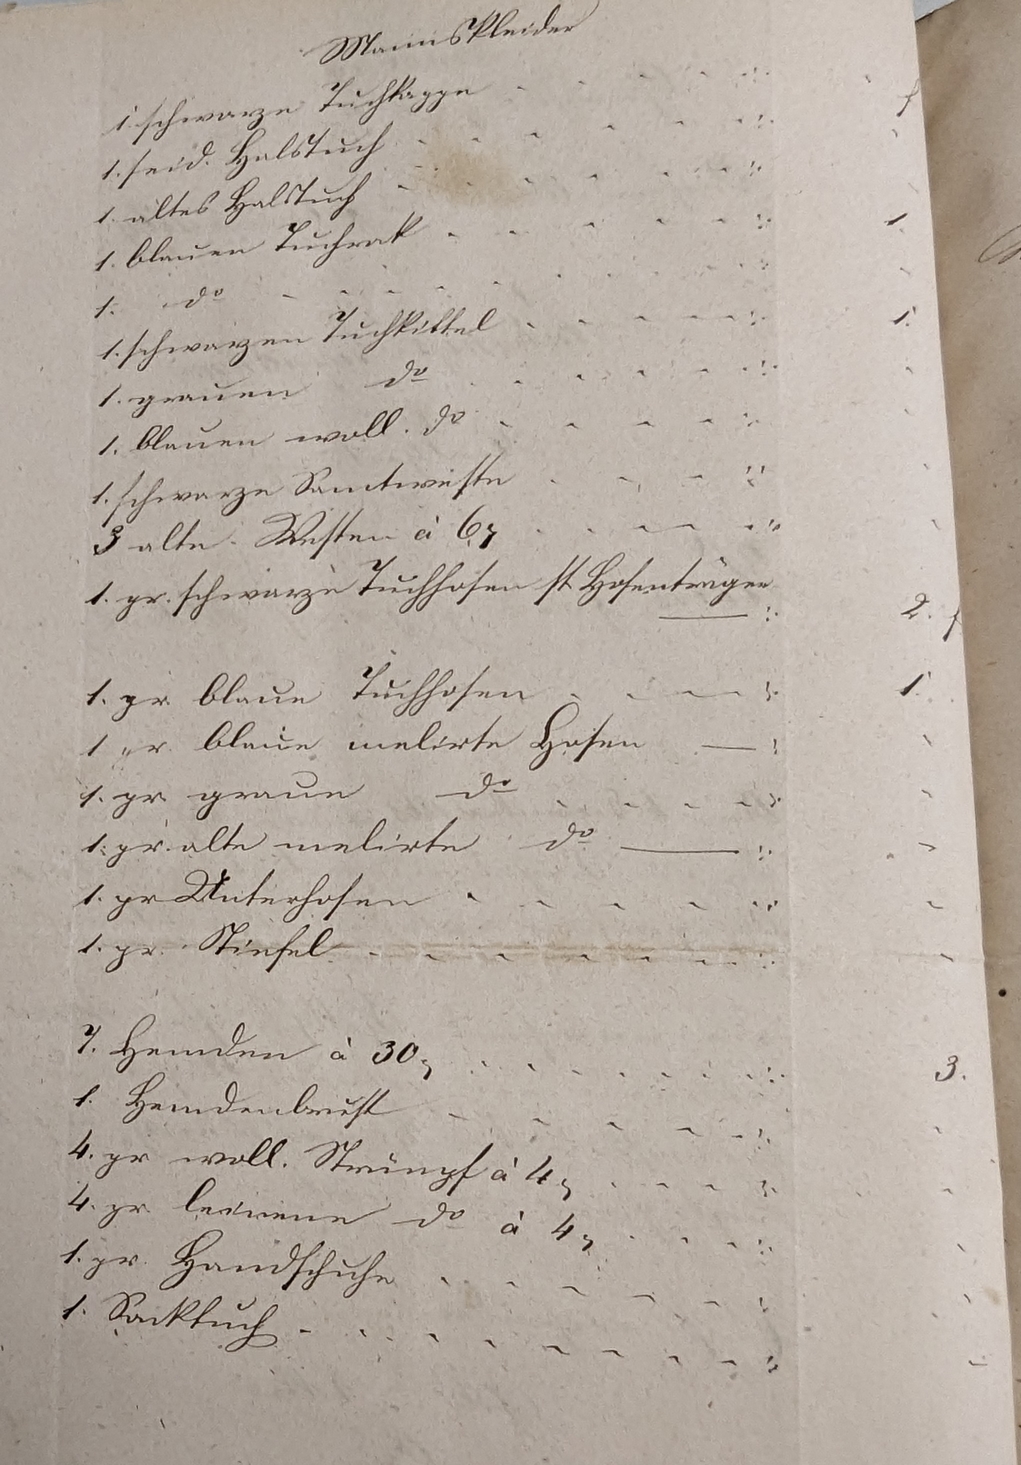 Mannskleider
1. schwarze Tuchkappe - - - - - :
1. seid. Halstuch - - - - - :
1. altes Halstuch - - - - - :
1. blauen Tuchrok - - - - - : 1.
1. do - - - - - :
1. schwarzen Tuchkittel - - - - - : 1.
1. grauen do - - - - - :
1. blauen woll. do - - - - :
1. schwarze Samtweste - - - - :
3 alte Westen à 6 - - - - :
1. pr. schwarze Tuchhosen st Hosenträger
— : 2. f
1. pr blaue Tuchhosen - - - - : 1.
1 pr. blaue melirte Hosen — :
1. pr. graue do - - - - - :
1. pr. alte melirte do — :
1. pr Unterhosen - - - - - :
1. pr. Stiefel - - - - - - :
7. Hemden à 30 - - - - - - : 3.
1. Hemdenbrust - - - - - - :
4. pr woll. Strümpf à 4 - - - - :
4. pr. leinene do à 4 - - - - :
1. pr. Handschuhe - - - - - - :
1. Sacktuch - - - - - - - :